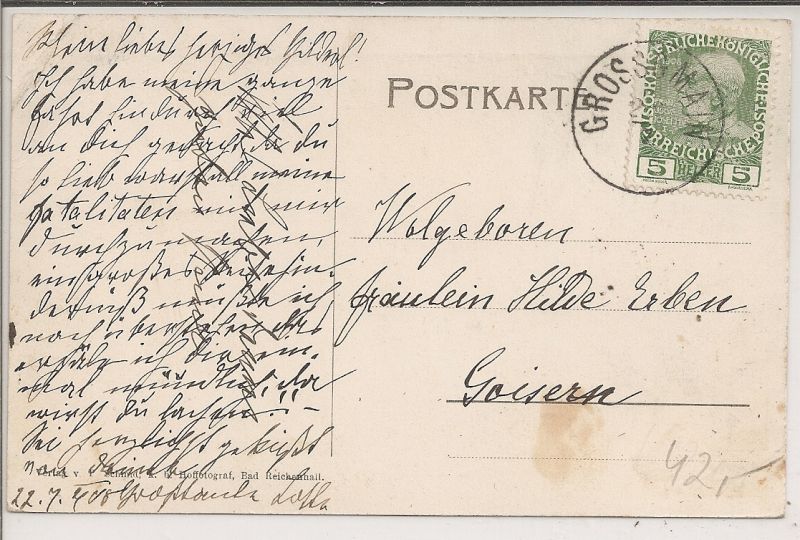 Mein liebes herziges Hilderl!
Ich habe meine ganze
Fahrt hindurch viel
an dich gedacht, da du
so lieb warst all meine
Fatalitäten mit mir
durchzumachen,
ein großes Reisehin-
derniß mußte ich
noch überstehen, das
erzähl ich dir ein-
mal mündlich, da
wirst du lachen!! –
Sei herzlichst geküßt
von deiner
22.7.1908 Großtante Lotte
Verlag v. Schmid, k. b. Hoffotograf, Bad Reichenhall.
POSTKARTE
GROSSGMAIN
KAISERLICHE KÖNIGLICHE ÖSTERREICHISCHE POST
5 HELLER 5
Wolgeboren
Fräulein Hilde Erben
Goisern
42,-